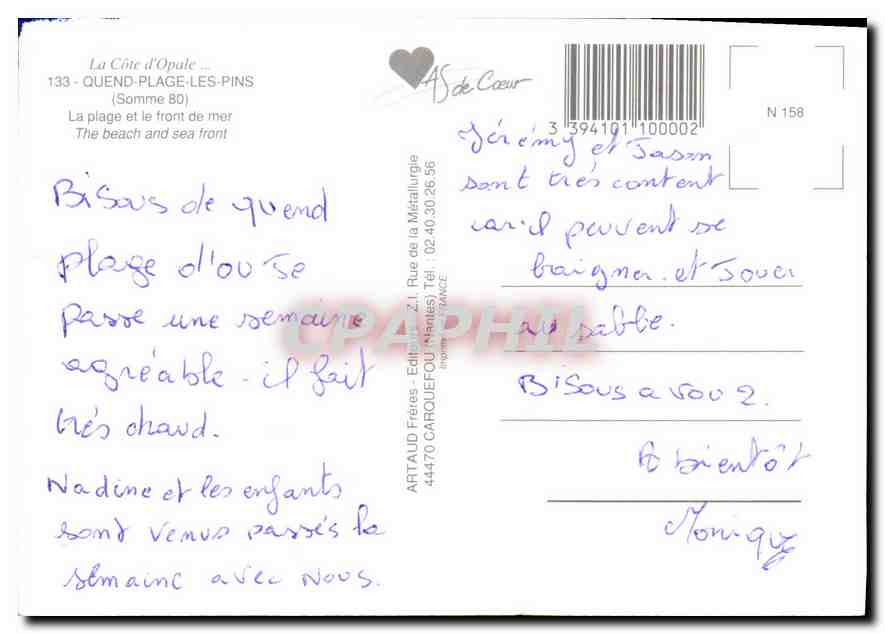 La Côte d'Opale ...
133 - QUEND-PLAGE-LES-PINS
(Somme 80)
La plage et le front de mer
The beach and sea front
Bisous de quend
plage d'ou Je
passe une semaine
agréable - il fait
très chaud.
Nadine et les enfants
sont venus passés la
semaine avec nous.
ARTAUD Frères - Editeurs - Z.I. Rue de la Métallurgie
44470 CARQUEFOU (Nantes) Tél. : 02.40.30.26.56
FRANCE
CPAPHIL
AS de Cœur
3 394101 100002
N 158
Jérémy et Jason
sont très content
car il peuvent se
baigner et Jouer
au sable.
Bisous a vou 2.
A bientôt
Monique